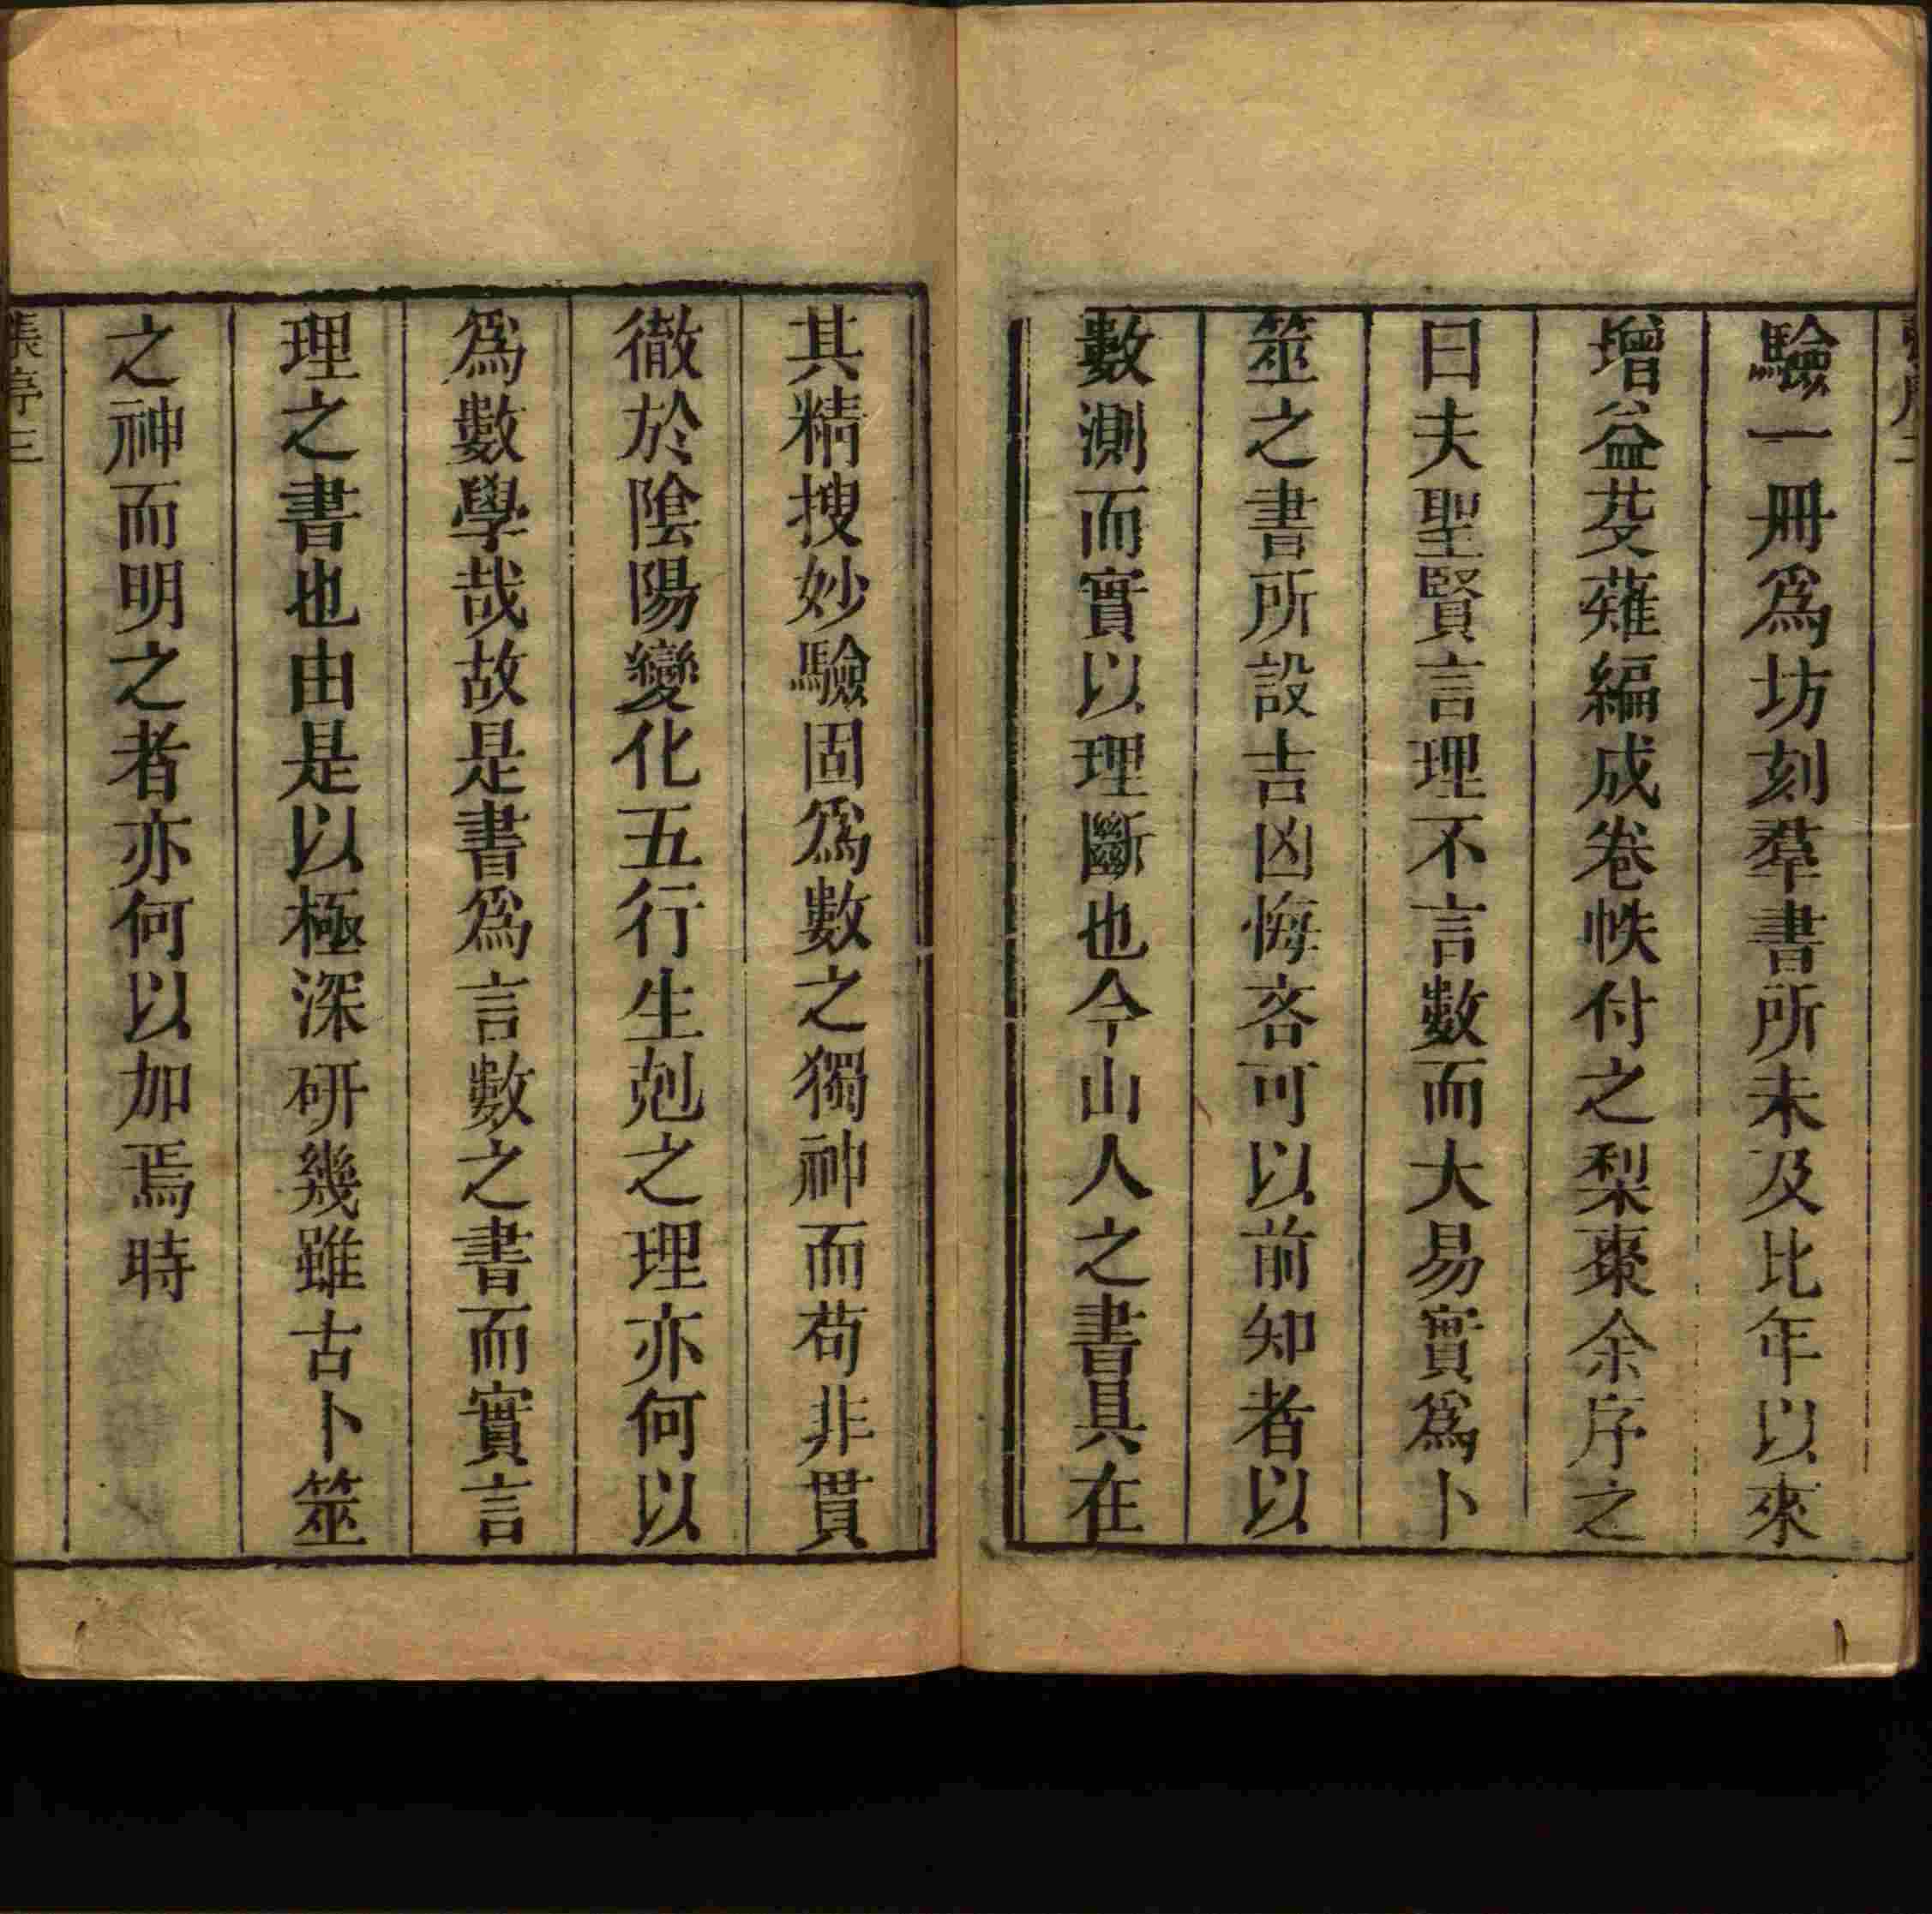 驗一冊爲坊刻羣書所未及比年以來
增益芟薙編成卷帙付之梨棗余序之
曰夫聖賢言理不言數而大易實爲卜
筮之書所設吉凶悔吝可以前知者以
數測而實以理斷也今山人之書具在
其精搜妙驗固爲數之獨神而苟非貫
徹於陰陽變化五行生剋之理亦何以
爲數學哉故是書爲言數之書而實言
理之書也由是以極深研幾雖古卜筮
之神而明之者亦何以加焉時
張序三